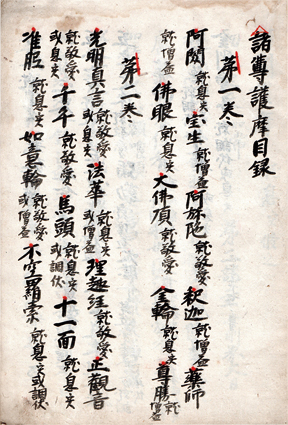 諸尊護摩目録
第一卷
阿閦就息災 宝生就僧益 阿弥陀就敬愛 釈迦就僧益 藥師
就僧益 佛眼就息災 大佛頂就敬愛 金輪就息災 尊勝就僧益
第二卷
光明真言就敬愛或息災 法華就息災 理趣経就敬愛 正觀音
就敬愛或息災 千手就敬愛 馬頭就息災或調伏 十一面就息災
准胝就息災 如意輪就敬愛或僧益 不空羂索就息災或調伏